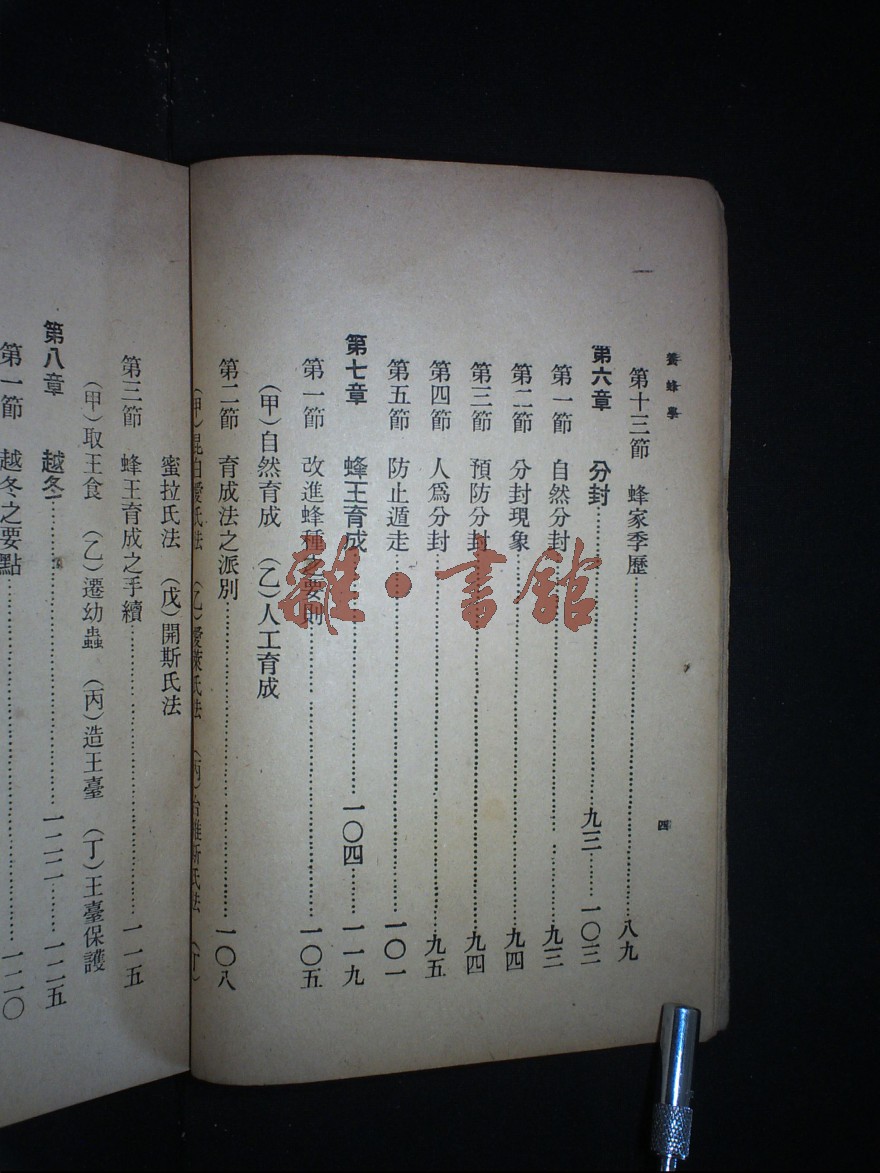 養蜂學
四
第十三節 蜂家季歷……八九
第六章 分封……九三……一〇三
第一節 自然分封……九三
第二節 分封現象……九四
第三節 預防分封……九四
第四節 人爲分封……九五
第五節 防止遁走……一〇一
第七章 蜂王育成……一〇四……一一九
第一節 改進蜂種之要則……一〇五
(甲)自然育成 (乙)人工育成
第二節 育成法之派別……一〇八
(甲) (乙)愛萊氏法 (丙) (丁)
蜜拉氏法 (戊)開斯氏法
第三節 蜂王育成之手續……一一五
(甲)取王食 (乙)遷幼蟲 (丙)造王臺 (丁)王臺保護
第八章 越冬……一二二……一二五
第一節 越冬之要點……一二〇
雜·書舘